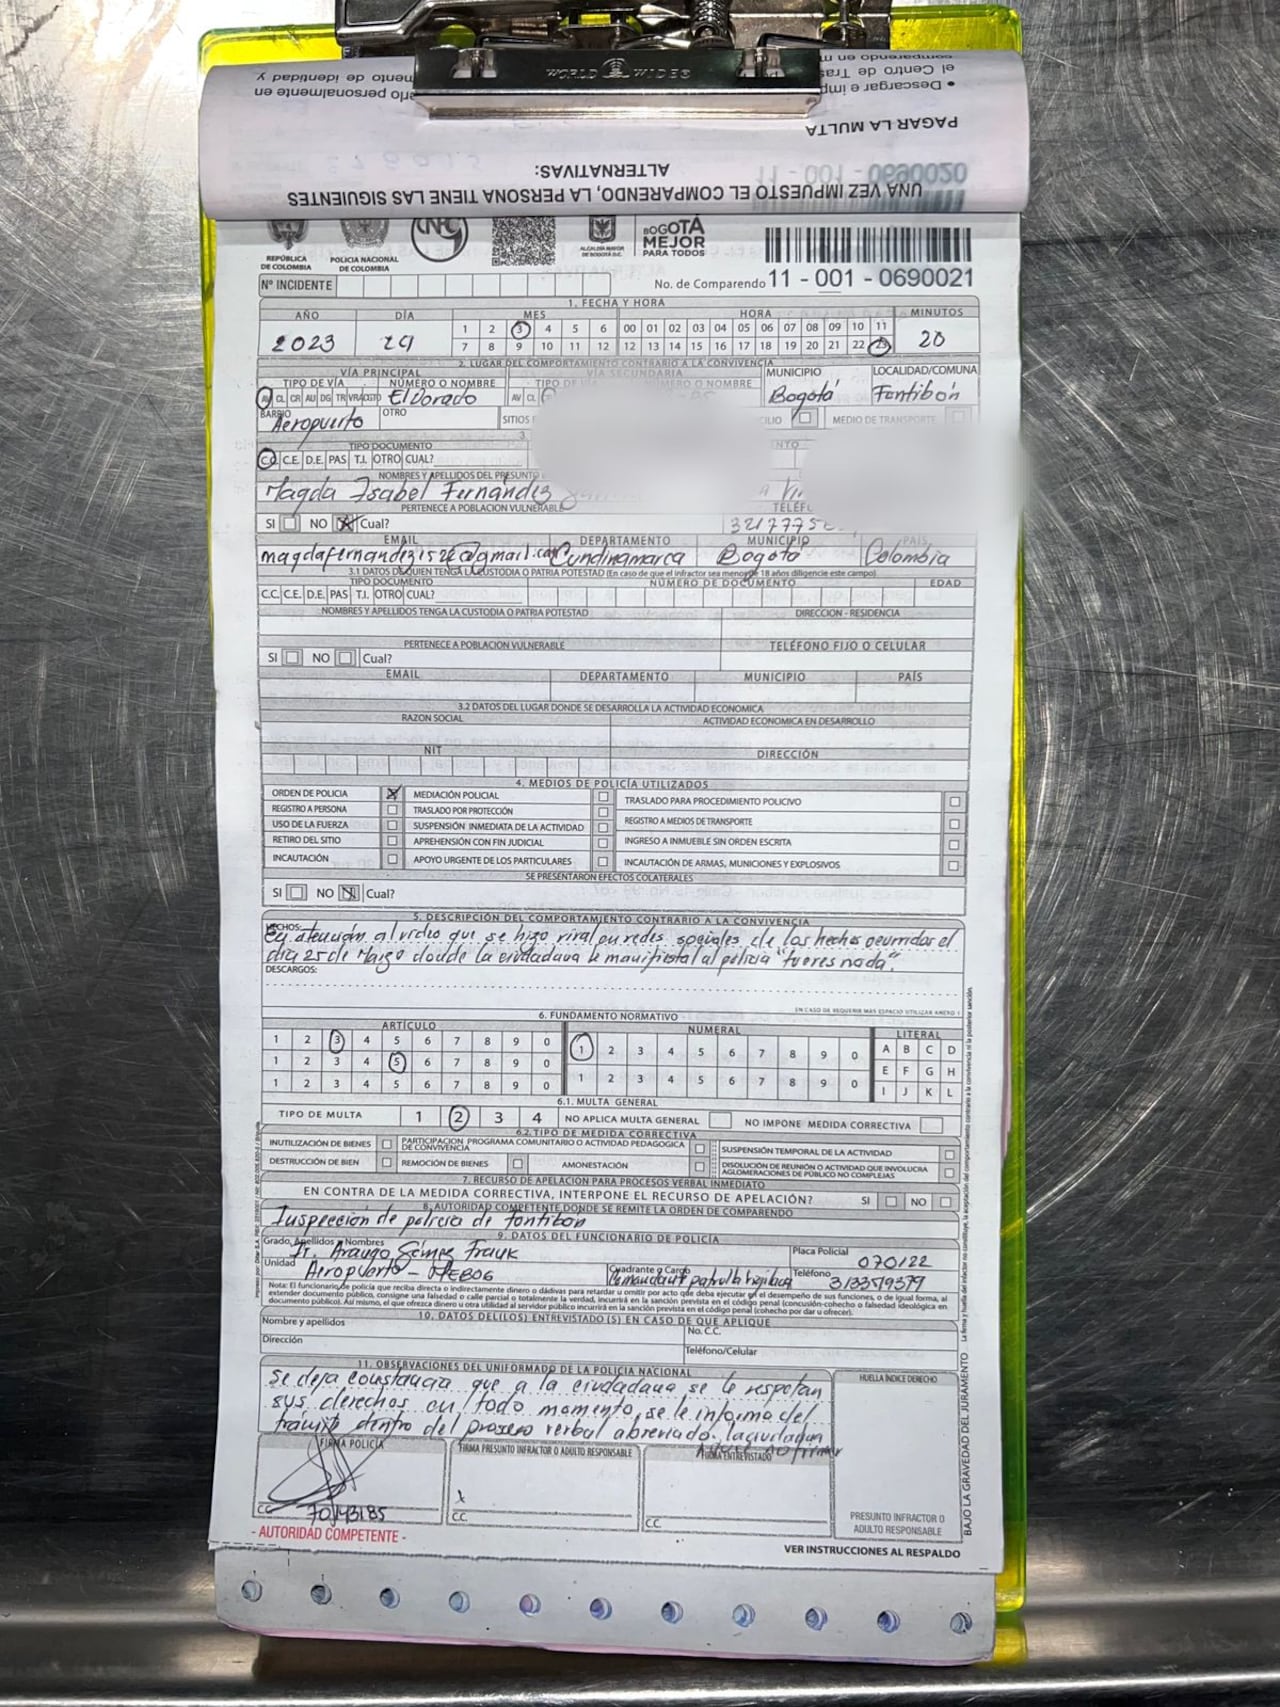 WORLD WIDE
comparendo en
el Centro de Tras
• Descargar e imp
rlo personalmente en
mento de identidad y
PAGAR LA MULTA
11 - 001 - 0690020
UNA VEZ IMPUESTO EL COMPARENDO, LA PERSONA TIENE LAS SIGUIENTES
ALTERNATIVAS:
REPÚBLICA DE COLOMBIA
POLICIA NACIONAL DE COLOMBIA
CNC
ALCALDÍA MAYOR DE BOGOTÁ D.C.
BOGOTÁ MEJOR PARA TODOS
Nº INCIDENTE
No. de Comparendo 11 - 001 - 0690021
1. FECHA Y HORA
AÑO DÍA MES HORA MINUTOS
1 2 3 4 5 6 00 01 02 03 04 05 06 07 08 09 10 11
2023 29 7 8 9 10 11 12 12 13 14 15 16 17 18 19 20 21 22 23 20
2. LUGAR DEL COMPORTAMIENTO CONTRARIO A LA CONVIVENCIA
VÍA PRINCIPAL VÍA SECUNDARIA MUNICIPIO LOCALIDAD/COMUNA
TIPO DE VÍA NÚMERO O NOMBRE TIPO DE VÍA NÚMERO O NOMBRE
CL CR AU DG TR El Dorado AV CL Bogotá Fontibón
BARRIO OTRO SITIOS CILIO MEDIO DE TRANSPORTE
Aeropuerto
3.
TIPO DOCUMENTO NTO
C.C. C.E. D.E. PAS T.I. OTRO CUAL?
NOMBRES Y APELLIDOS DEL PRESUNTO
Magda Isabel Fernandez
PERTENECE A POBLACION VULNERABLE TELÉF
SI NO Cual? 3217775
EMAIL DEPARTAMENTO MUNICIPIO PAÍS
@gmail.com Cundinamarca Bogotá Colombia
3.1 DATOS DE QUIEN TENGA LA CUSTODIA O PATRIA POTESTAD (En caso de que el infractor sea menor de 18 años diligencie este campo)
TIPO DOCUMENTO NÚMERO DE DOCUMENTO EDAD
C.C. C.E. D.E. PAS T.I. OTRO CUAL?
NOMBRES Y APELLIDOS TENGA LA CUSTODIA O PATRIA POTESTAD DIRECCION - RESIDENCIA
PERTENECE A POBLACION VULNERABLE TELÉFONO FIJO O CELULAR
SI NO Cual?
EMAIL DEPARTAMENTO MUNICIPIO PAÍS
3.2 DATOS DEL LUGAR DONDE SE DESARROLLA LA ACTIVIDAD ECONOMICA
RAZON SOCIAL ACTIVIDAD ECONOMICA EN DESARROLLO
NIT DIRECCIÓN
4. MEDIOS DE POLICÍA UTILIZADOS
ORDEN DE POLICIA X MEDIACIÓN POLICIAL TRASLADO PARA PROCEDIMIENTO POLICIVO
REGISTRO A PERSONA TRASLADO POR PROTECCIÓN REGISTRO A MEDIOS DE TRANSPORTE
USO DE LA FUERZA SUSPENSIÓN INMEDIATA DE LA ACTIVIDAD
RETIRO DEL SITIO APREHENSIÓN CON FIN JUDICIAL INGRESO A INMUEBLE SIN ORDEN ESCRITA
INCAUTACIÓN APOYO URGENTE DE LOS PARTICULARES INCAUTACIÓN DE ARMAS, MUNICIONES Y EXPLOSIVOS
SE PRESENTARON EFECTOS COLATERALES
SI NO Cual?
5. DESCRIPCIÓN DEL COMPORTAMIENTO CONTRARIO A LA CONVIVENCIA
HECHOS: En atención al video que se hizo viral en redes sociales de los hechos ocurridos el
día 25 de Marzo donde la ciudadana le manifiesta al policía "tu eres nada".
DESCARGOS:
EN CASO DE REQUERIR MAS ESPACIO UTILIZAR ANEXO 1
6. FUNDAMENTO NORMATIVO
ARTÍCULO NUMERAL LITERAL
1 2 3 4 5 6 7 8 9 0 1 2 3 4 5 6 7 8 9 0 A B C D
1 2 3 4 5 6 7 8 9 0 E F G H
1 2 3 4 5 6 7 8 9 0 1 2 3 4 5 6 7 8 9 0 I J K L
6.1. MULTA GENERAL
TIPO DE MULTA 1 2 3 4 NO APLICA MULTA GENERAL NO IMPONE MEDIDA CORRECTIVA
6.2. TIPO DE MEDIDA CORRECTIVA
INUTILIZACIÓN DE BIENES PARTICIPACION PROGRAMA COMUNITARIO O ACTIVIDAD PEDAGOGICA DE CONVIVENCIA SUSPENSIÓN TEMPORAL DE LA ACTIVIDAD
DESTRUCCIÓN DE BIEN REMOCIÓN DE BIENES AMONESTACIÓN DISOLUCIÓN DE REUNIÓN O ACTIVIDAD QUE INVOLUCRA AGLOMERACIONES DE PÚBLICO NO COMPLEJAS
7. RECURSO DE APELACIÓN PARA PROCESOS VERBAL INMEDIATO
EN CONTRA DE LA MEDIDA CORRECTIVA, INTERPONE EL RECURSO DE APELACIÓN? SI NO
8. AUTORIDAD COMPETENTE DONDE SE REMITE LA ORDEN DE COMPARENDO
Inspección de policía de Fontibon
9. DATOS DEL FUNCIONARIO DE POLICÍA
Grado, Apellidos y Nombres Placa Policial
It. Araugo Gómez Frank 070122
Unidad Cuadrante o Cargo Teléfono
Aeropuerto - MEBOG Comandante patrulla vigilancia 3133579379
Nota: El funcionario de policía que reciba directa o indirectamente dinero o dádivas para retardar u omitir por acto que deba ejecutar en el desempeño de sus funciones, o de igual forma, al
extender documento público, consigne una falsedad o calle parcial o totalmente la verdad, incurrirá en la sanción prevista en el código penal (concusión-cohecho o falsedad ideológica en
documento público). Así mismo, el que ofrezca dinero u otra utilidad al servidor público incurrirá en la sanción prevista en el código penal (cohecho por dar u ofrecer).
10. DATOS DEL(LOS) ENTREVISTADO (S) EN CASO DE QUE APLIQUE
Nombre y apellidos No. C.C.
Dirección Teléfono/Celular
11. OBSERVACIONES DEL UNIFORMADO DE LA POLICIA NACIONAL HUELLA ÍNDICE DERECHO
Se deja constancia que a la ciudadana se le respetan
sus derechos en todo momento, se le informa del
tramite dentro del proseso verbal abreviado. la ciudadana
no firmar
FIRMA POLICÍA FIRMA PRESUNTO INFRACTOR O ADULTO RESPONSABLE FIRMA ENTREVISTADO
CC 70143185 x CC. CC.
PRESUNTO INFRACTOR O ADULTO RESPONSABLE
- AUTORIDAD COMPETENTE -
VER INSTRUCCIONES AL RESPALDO
BAJO LA GRAVEDAD DEL JURAMENTO